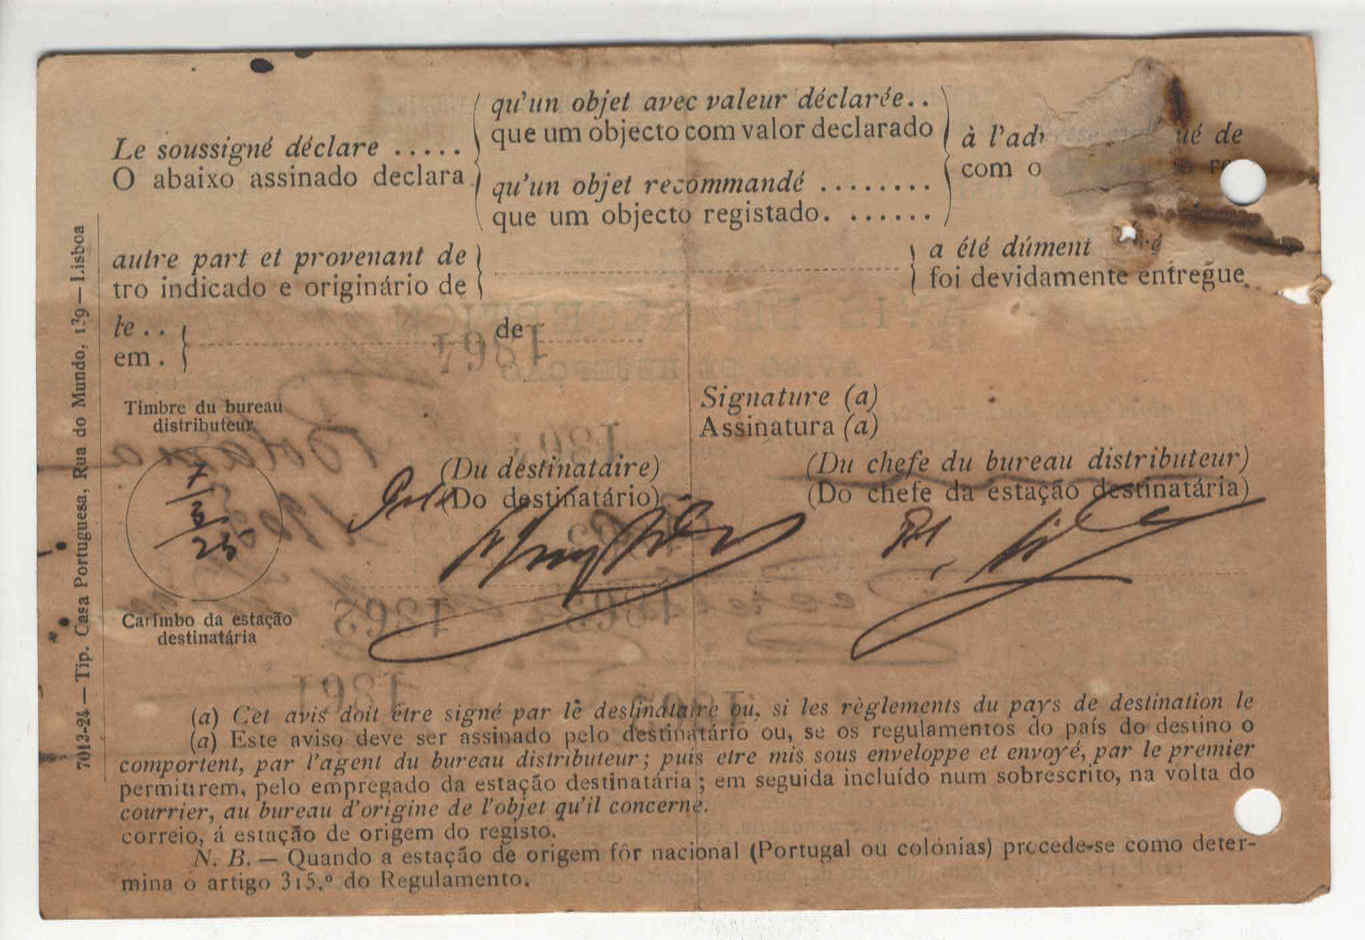 Le soussigné déclare .....
O abaixo assinado declara
qu'un objet avec valeur déclarée..
que um objecto com valor declarado
qu'un objet recommandé ........
que um objecto registado. ......
à l'ad ué de
com o
autre part et provenant de
tro indicado e originário de
a été dûment
foi devidamente entregue
le .. de
em .
Timbre du bureau
distributeur
Signature (a)
Assinatura (a)
(Du destinataire)
(Do destinatário)
(Du chefe du bureau distributeur)
(Do chefe da estação destinatária)
7
3
25
Carimbo da estação
destinatária
(a) Cet avis doit être signé par le destinataire ou, si les règlements du pays de destination le
(a) Este aviso deve ser assinado pelo destinatário ou, se os regulamentos do país do destino o
comportent, par l'agent du bureau distributeur; puis etre mis sous enveloppe et envoyé, par le premier
permitirem, pelo empregado da estação destinatária; em seguida incluído num sobrescrito, na volta do
courrier, au bureau d'origine de l'objet qu'il concerne.
correio, á estação de origem do registo.
N. B. — Quando a estação de origem fôr nacional (Portugal ou colónias) procede-se como deter-
mina o artigo 315.º do Regulamento.
7012-24 — Tip. Casa Portuguesa, Rua do Mundo, 139 — Lisboa